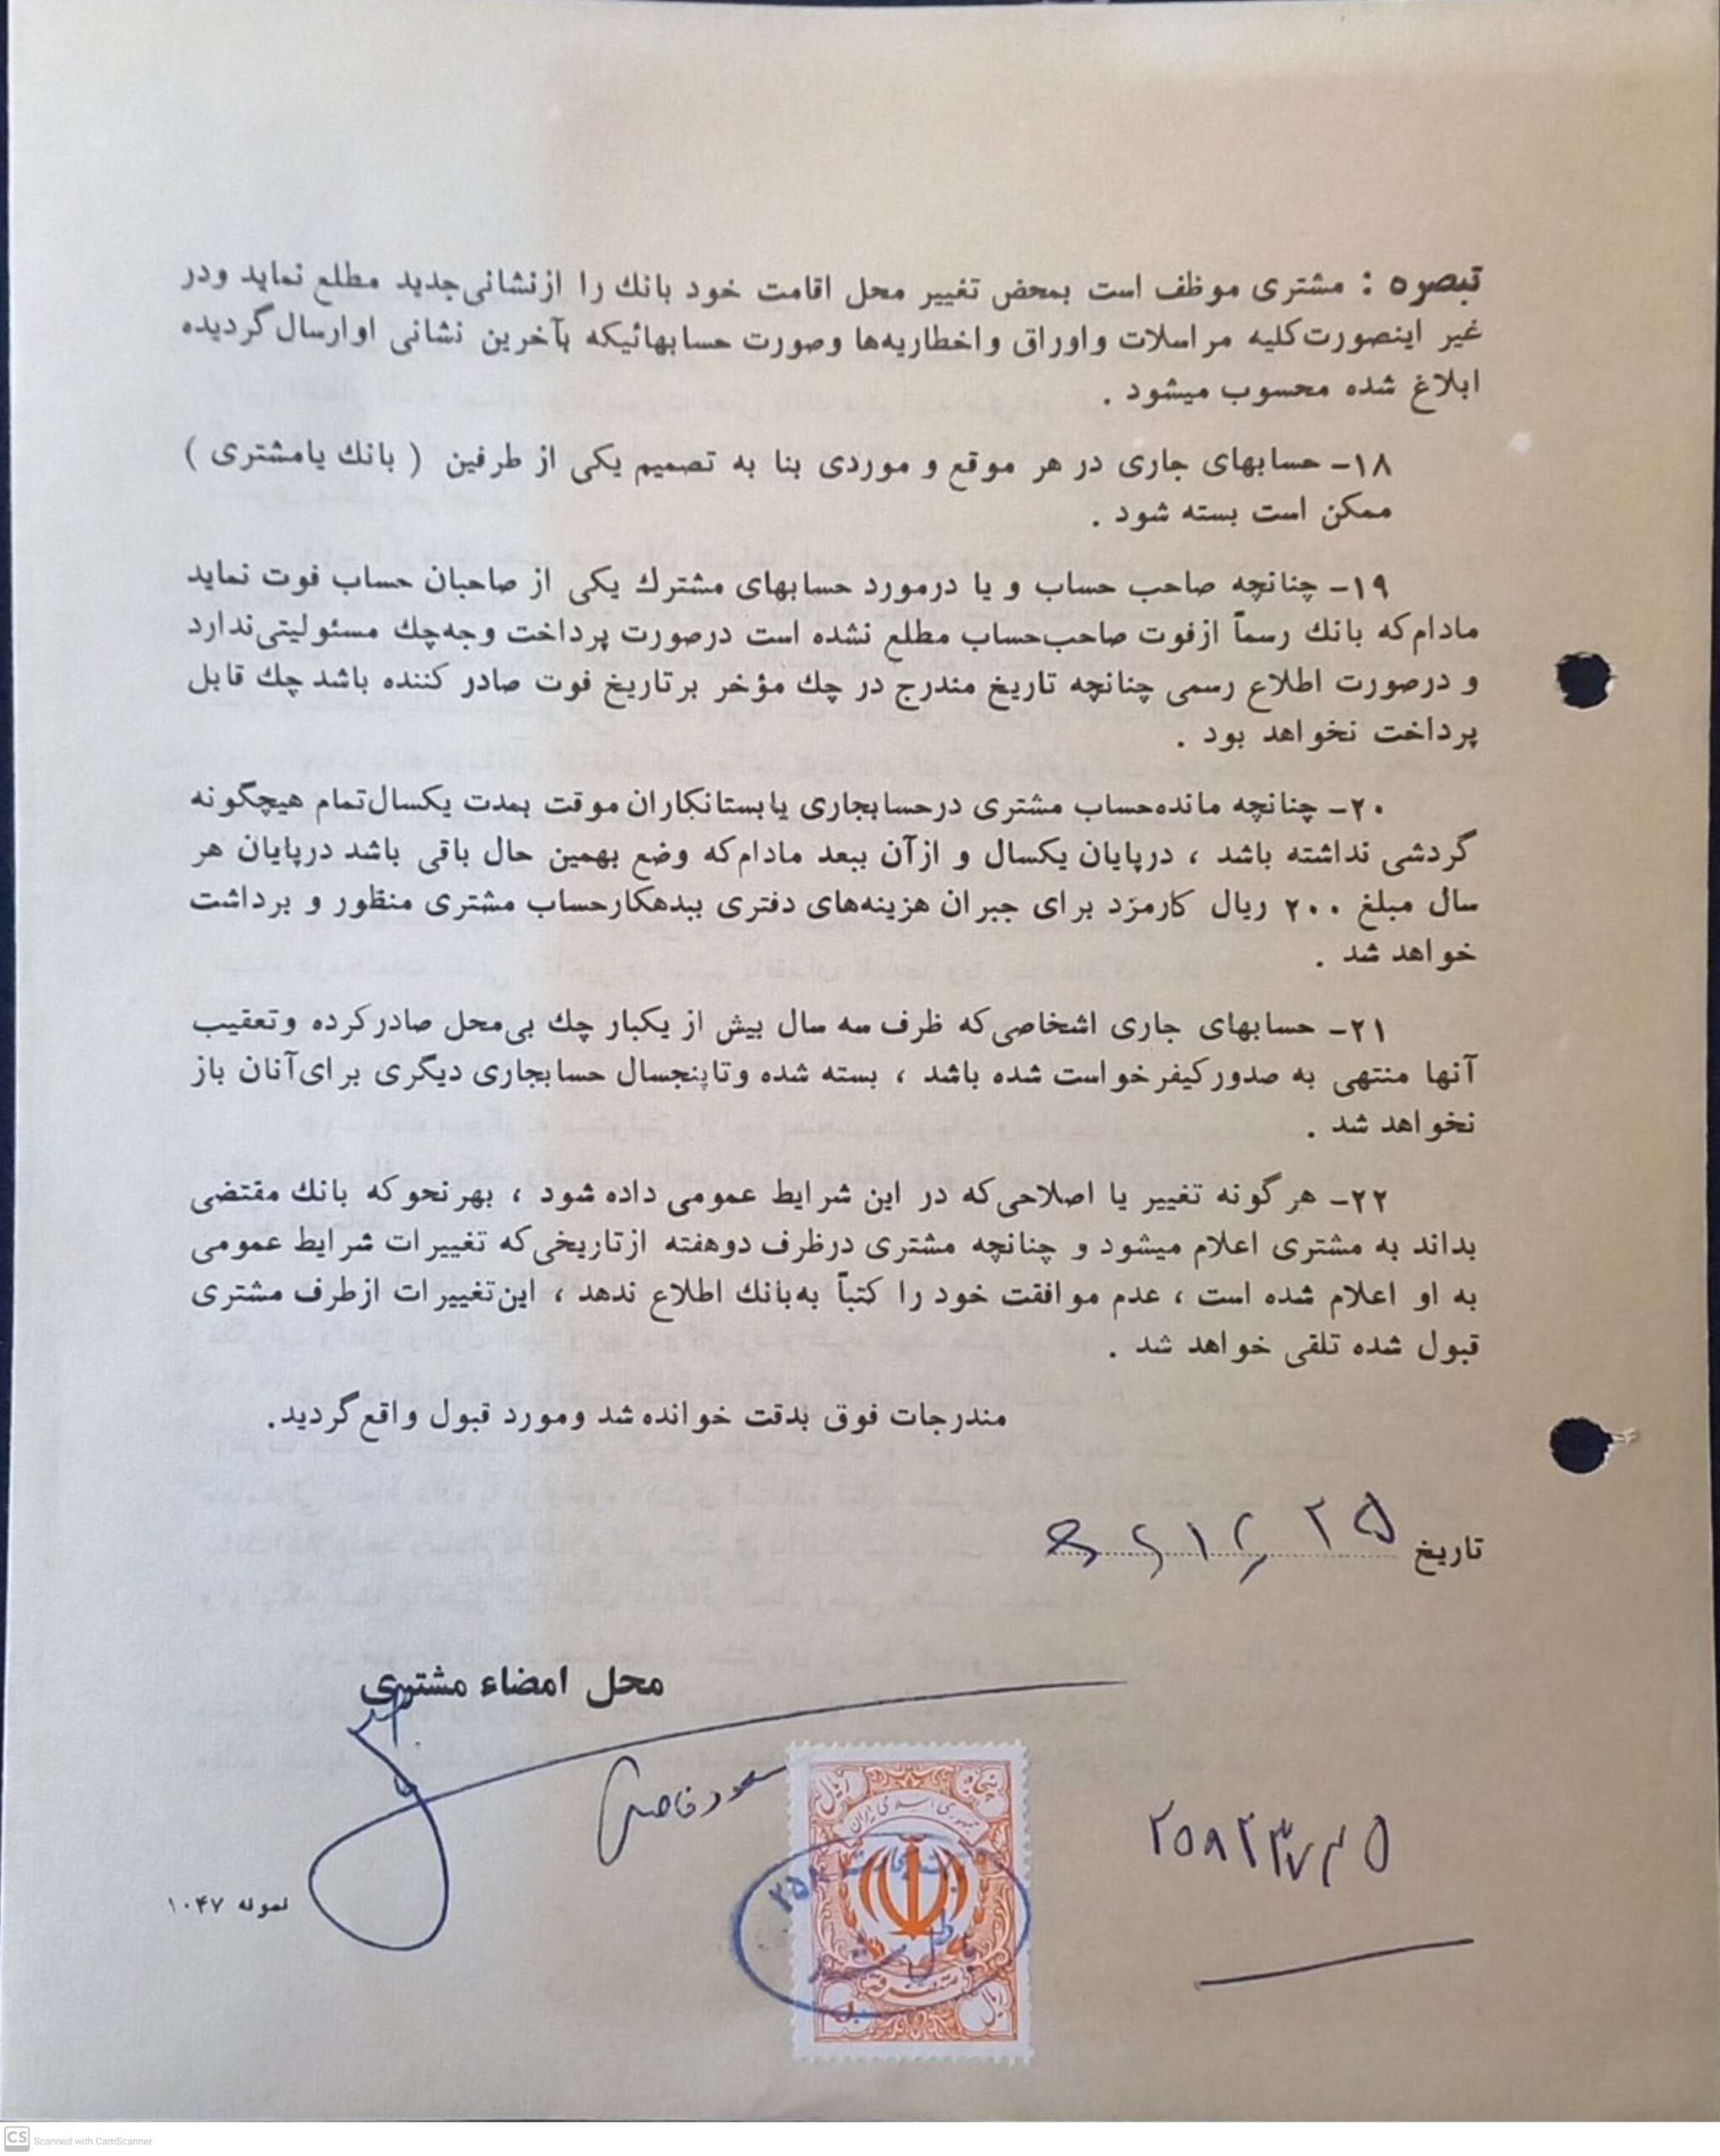 تبصره : مشتری موظف است بمحض تغییر محل اقامت خود بانك را ازنشانی‌جدید مطلع نماید ودر
غیر اینصورت‌کلیه مراسلات واوراق واخطاریه‌ها وصورت حسابهائیکه بآخرین نشانی اوارسال‌گردیده
ابلاغ شده محسوب میشود .
۱۸– حسابهای جاری در هر موقع و موردی بنا به تصمیم یکی از طرفین ( بانك یامشتری )
ممکن است بسته شود .
۱۹– چنانچه صاحب حساب و یا درمورد حسابهای مشترك یکی از صاحبان حساب فوت نماید
مادام‌که بانك رسماً ازفوت صاحب‌حساب مطلع نشده است درصورت پرداخت وجه‌چك مسئولیتی‌ندارد
و درصورت اطلاع رسمی چنانچه تاریخ مندرج در چك مؤخر برتاریخ فوت صادر کننده باشد چك قابل
پرداخت نخواهد بود .
۲۰– چنانچه مانده‌حساب مشتری درحسابجاری یابستانکاران موقت بمدت یکسال‌تمام هیچگونه
گردشی نداشته باشد ، درپایان یکسال و ازآن ببعد مادام‌که وضع بهمین حال باقی باشد درپایان هر
سال مبلغ ۲۰۰ ریال کارمزد برای جبران هزینه‌های دفتری ببدهکارحساب مشتری منظور و برداشت
خواهد شد .
۲۱– حسابهای جاری اشخاصی‌که ظرف سه سال بیش از یکبار چك بی‌محل صادرکرده وتعقیب
آنها منتهی به صدورکیفرخواست شده باشد ، بسته شده وتاپنجسال حسابجاری دیگری برای‌آنان باز
نخواهد شد .
۲۲– هرگونه تغییر یا اصلاحی‌که در این شرایط عمومی داده شود ، بهرنحوکه بانك مقتضی
بداند به مشتری اعلام میشود و چنانچه مشتری درظرف دوهفته ازتاریخی‌که تغییرات شرایط عمومی
به او اعلام شده است ، عدم موافقت خود را کتباً به‌بانك اطلاع ندهد ، این‌تغییرات ازطرف مشتری
قبول شده تلقی خواهد شد .
مندرجات فوق بدقت خوانده شد ومورد قبول واقع‌گردید.
تاریخ ۲۵
محل امضاء مشتری
جمهوری اسلامی ایران
ریال
متفرقه
باطل شد
نمونه ۱۰۴۷
CS Scanned with CamScanner